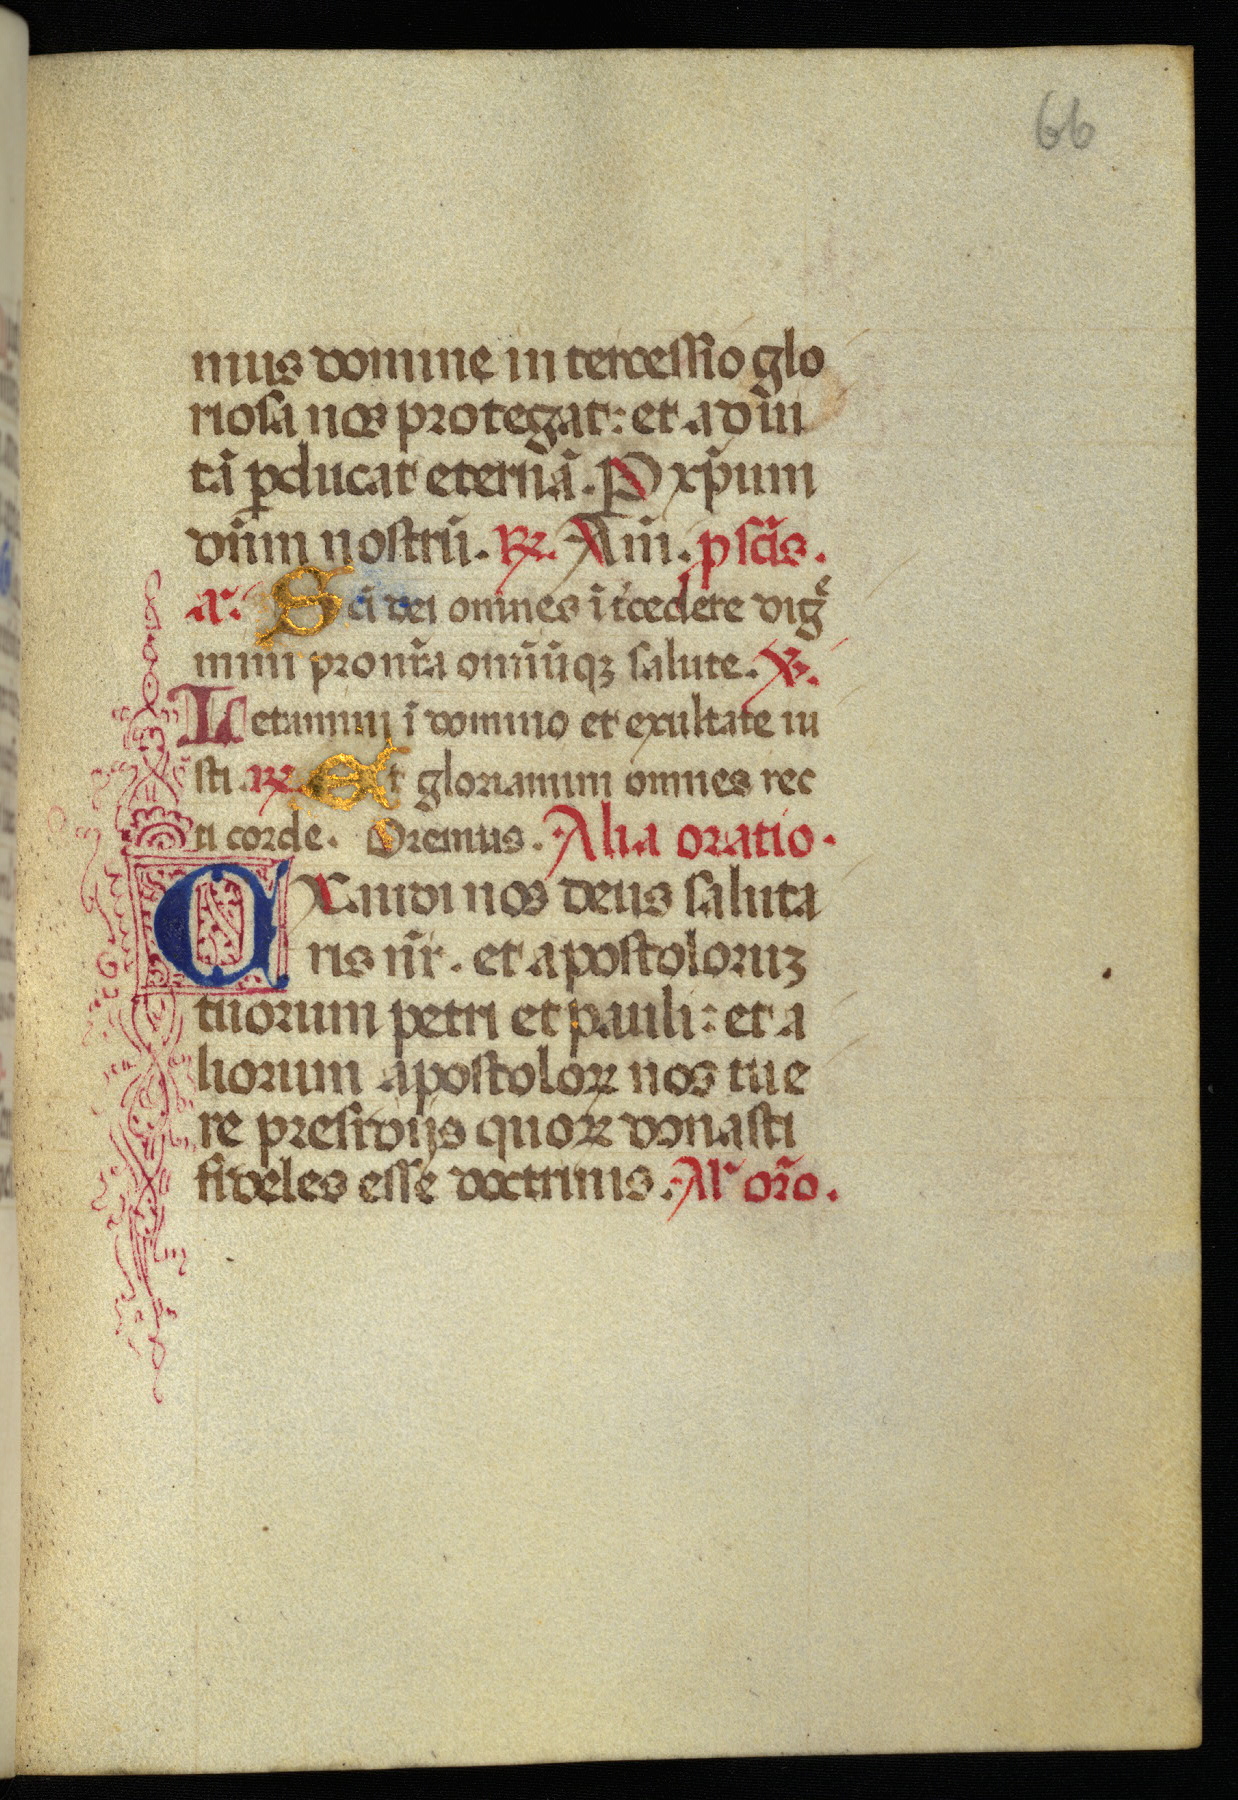 66
mus domine in tercessio glo
riosa nos protegat: et ad ui
tā ꝑducat eternā. P xp̄um
dn̄m nostrū. ℟. Am̄. p sc̄is.
a. Sc̄i dei omnes īt̄cedere dig̾
mini pro nr̄a omn̄iūqꝫ salute. ℣.
Letamini ī domino et exultate iu
sti. ℟. Et gloriamini omnes rec
ti corde. Oremus. Alia oratio.
EXaudi nos deus saluta
ris nr̄. et apostoloruꝫ
tuorum petri et pauli: et a
liorum apostoloꝝ nos tue
re presidijs quoꝝ donasti
fideles esse doctrinis. Al' or̄o.